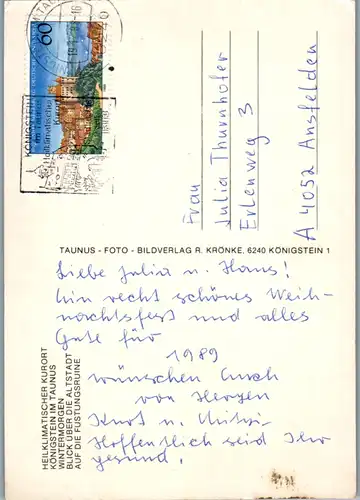 60
KÖNIGSTEIN
im Taunus
Frau
Julia Thurnhofer
Erlenweg 3
A 4052 Ansfelden
TAUNUS - FOTO - BILDVERLAG R. KRÖNKE, 6240 KÖNIGSTEIN 1
Liebe Julia u. Hans!
Ein recht schönes Weih-
nachtsfest und alles
Gute für
1989
wünschen Euch
von Herzen
Kurt u. Mitzi
Hoffentlich seid Ihr
gesund.
HEILKLIMATISCHER KURORT
KÖNIGSTEIN IM TAUNUS
WINTERMORGEN
BLICK ÜBER DIE ALTSTADT
AUF DIE FUSTUNGSRUINE